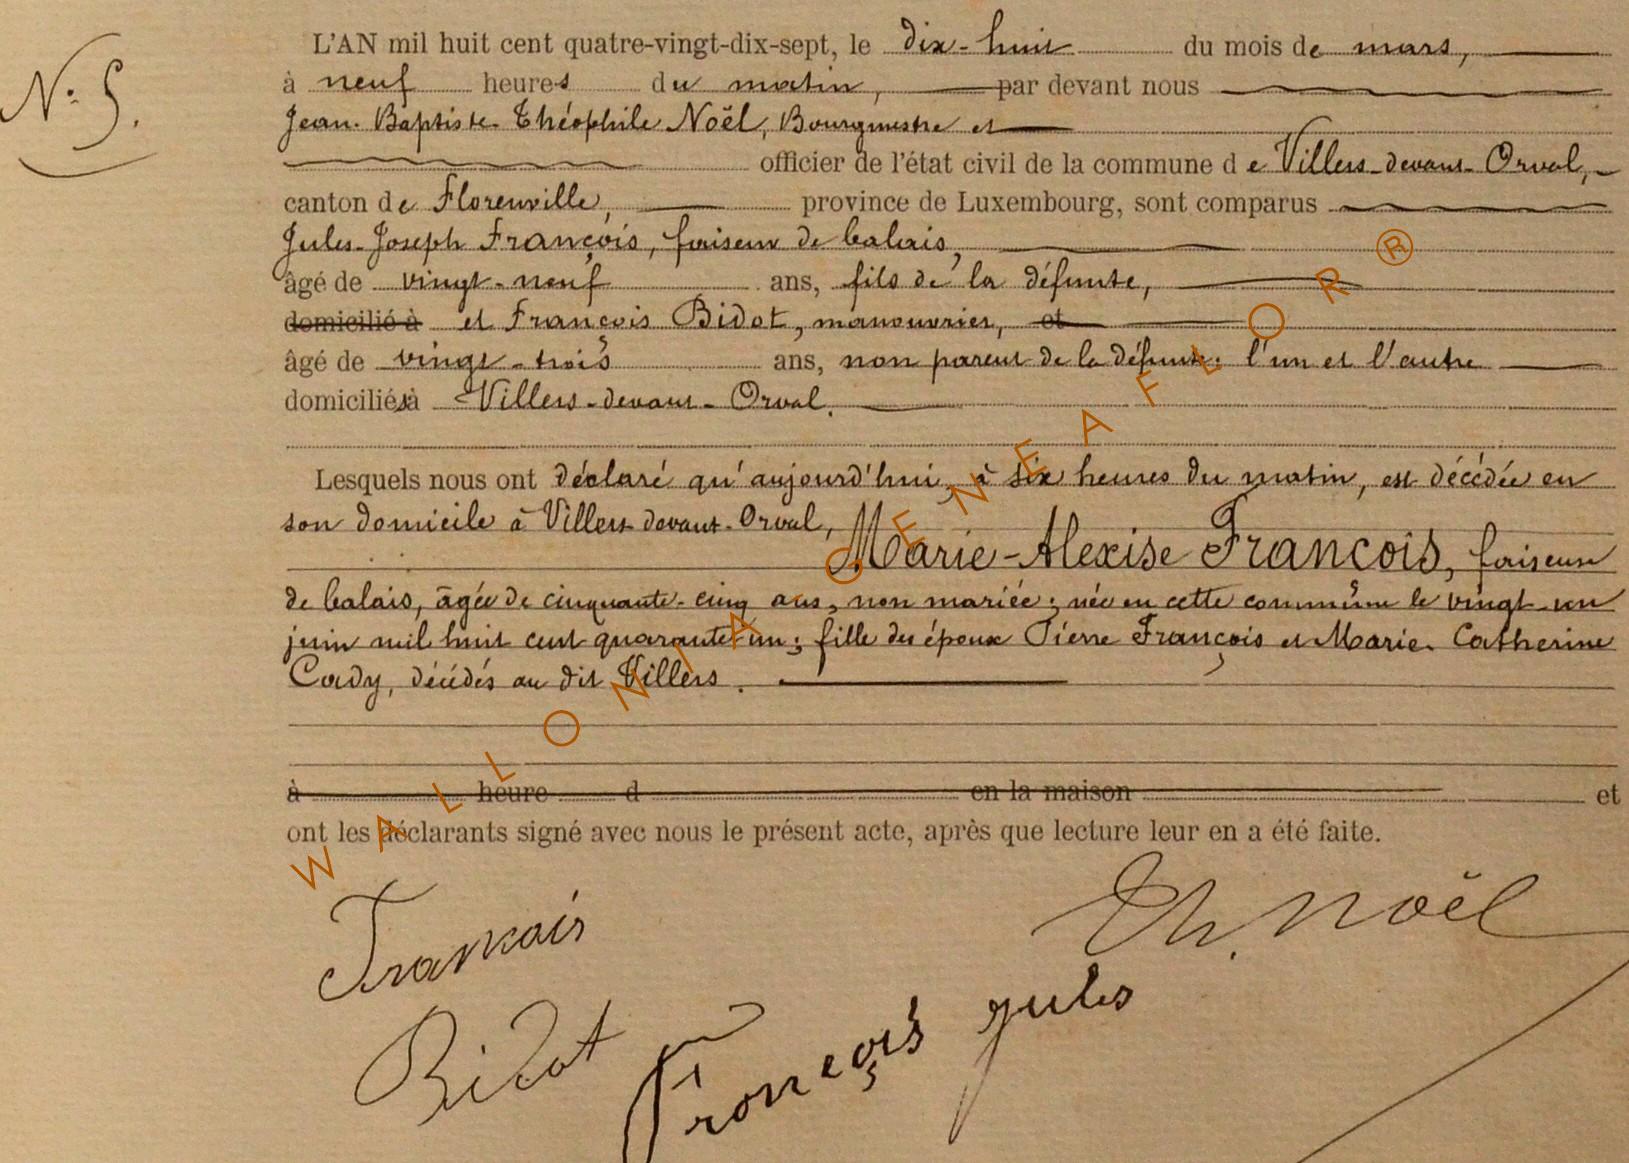 N.o 5.
L'AN mil huit cent quatre-vingt-dix-sept, le dix-huit du mois de mars,
à neuf heures du matin, par devant nous
Jean-Baptiste-Théophile Noël, Bourgmestre et
officier de l'état civil de la commune de Villers-devant-Orval,
canton de Florenville, province de Luxembourg, sont comparus
Jules-Joseph François, faiseur de balais,
âgé de vingt-neuf ans, fils de la défunte,
domicilié à et François Bidot, manouvrier, et
âgé de vingt-trois ans, non parent de la défunte; l'un et l'autre
domiciliés à Villers-devant-Orval.
Lesquels nous ont déclaré qu'aujourd'hui, à six heures du matin, est décédée en
son domicile à Villers-devant-Orval,
Marie-Alexise François, faiseuse
de balais, âgée de cinquante-cinq ans, non mariée; née en cette commune le vingt-un
juin mil huit cent quarante-un; fille des époux Pierre François et Marie-Catherine
Cady, décédés au dit Villers.
à heure d en la maison et
ont les déclarants signé avec nous le présent acte, après que lecture leur en a été faite.
Th. Noël
Francois
Bidot
François jules
WALLONIA GENEAFLOR ®